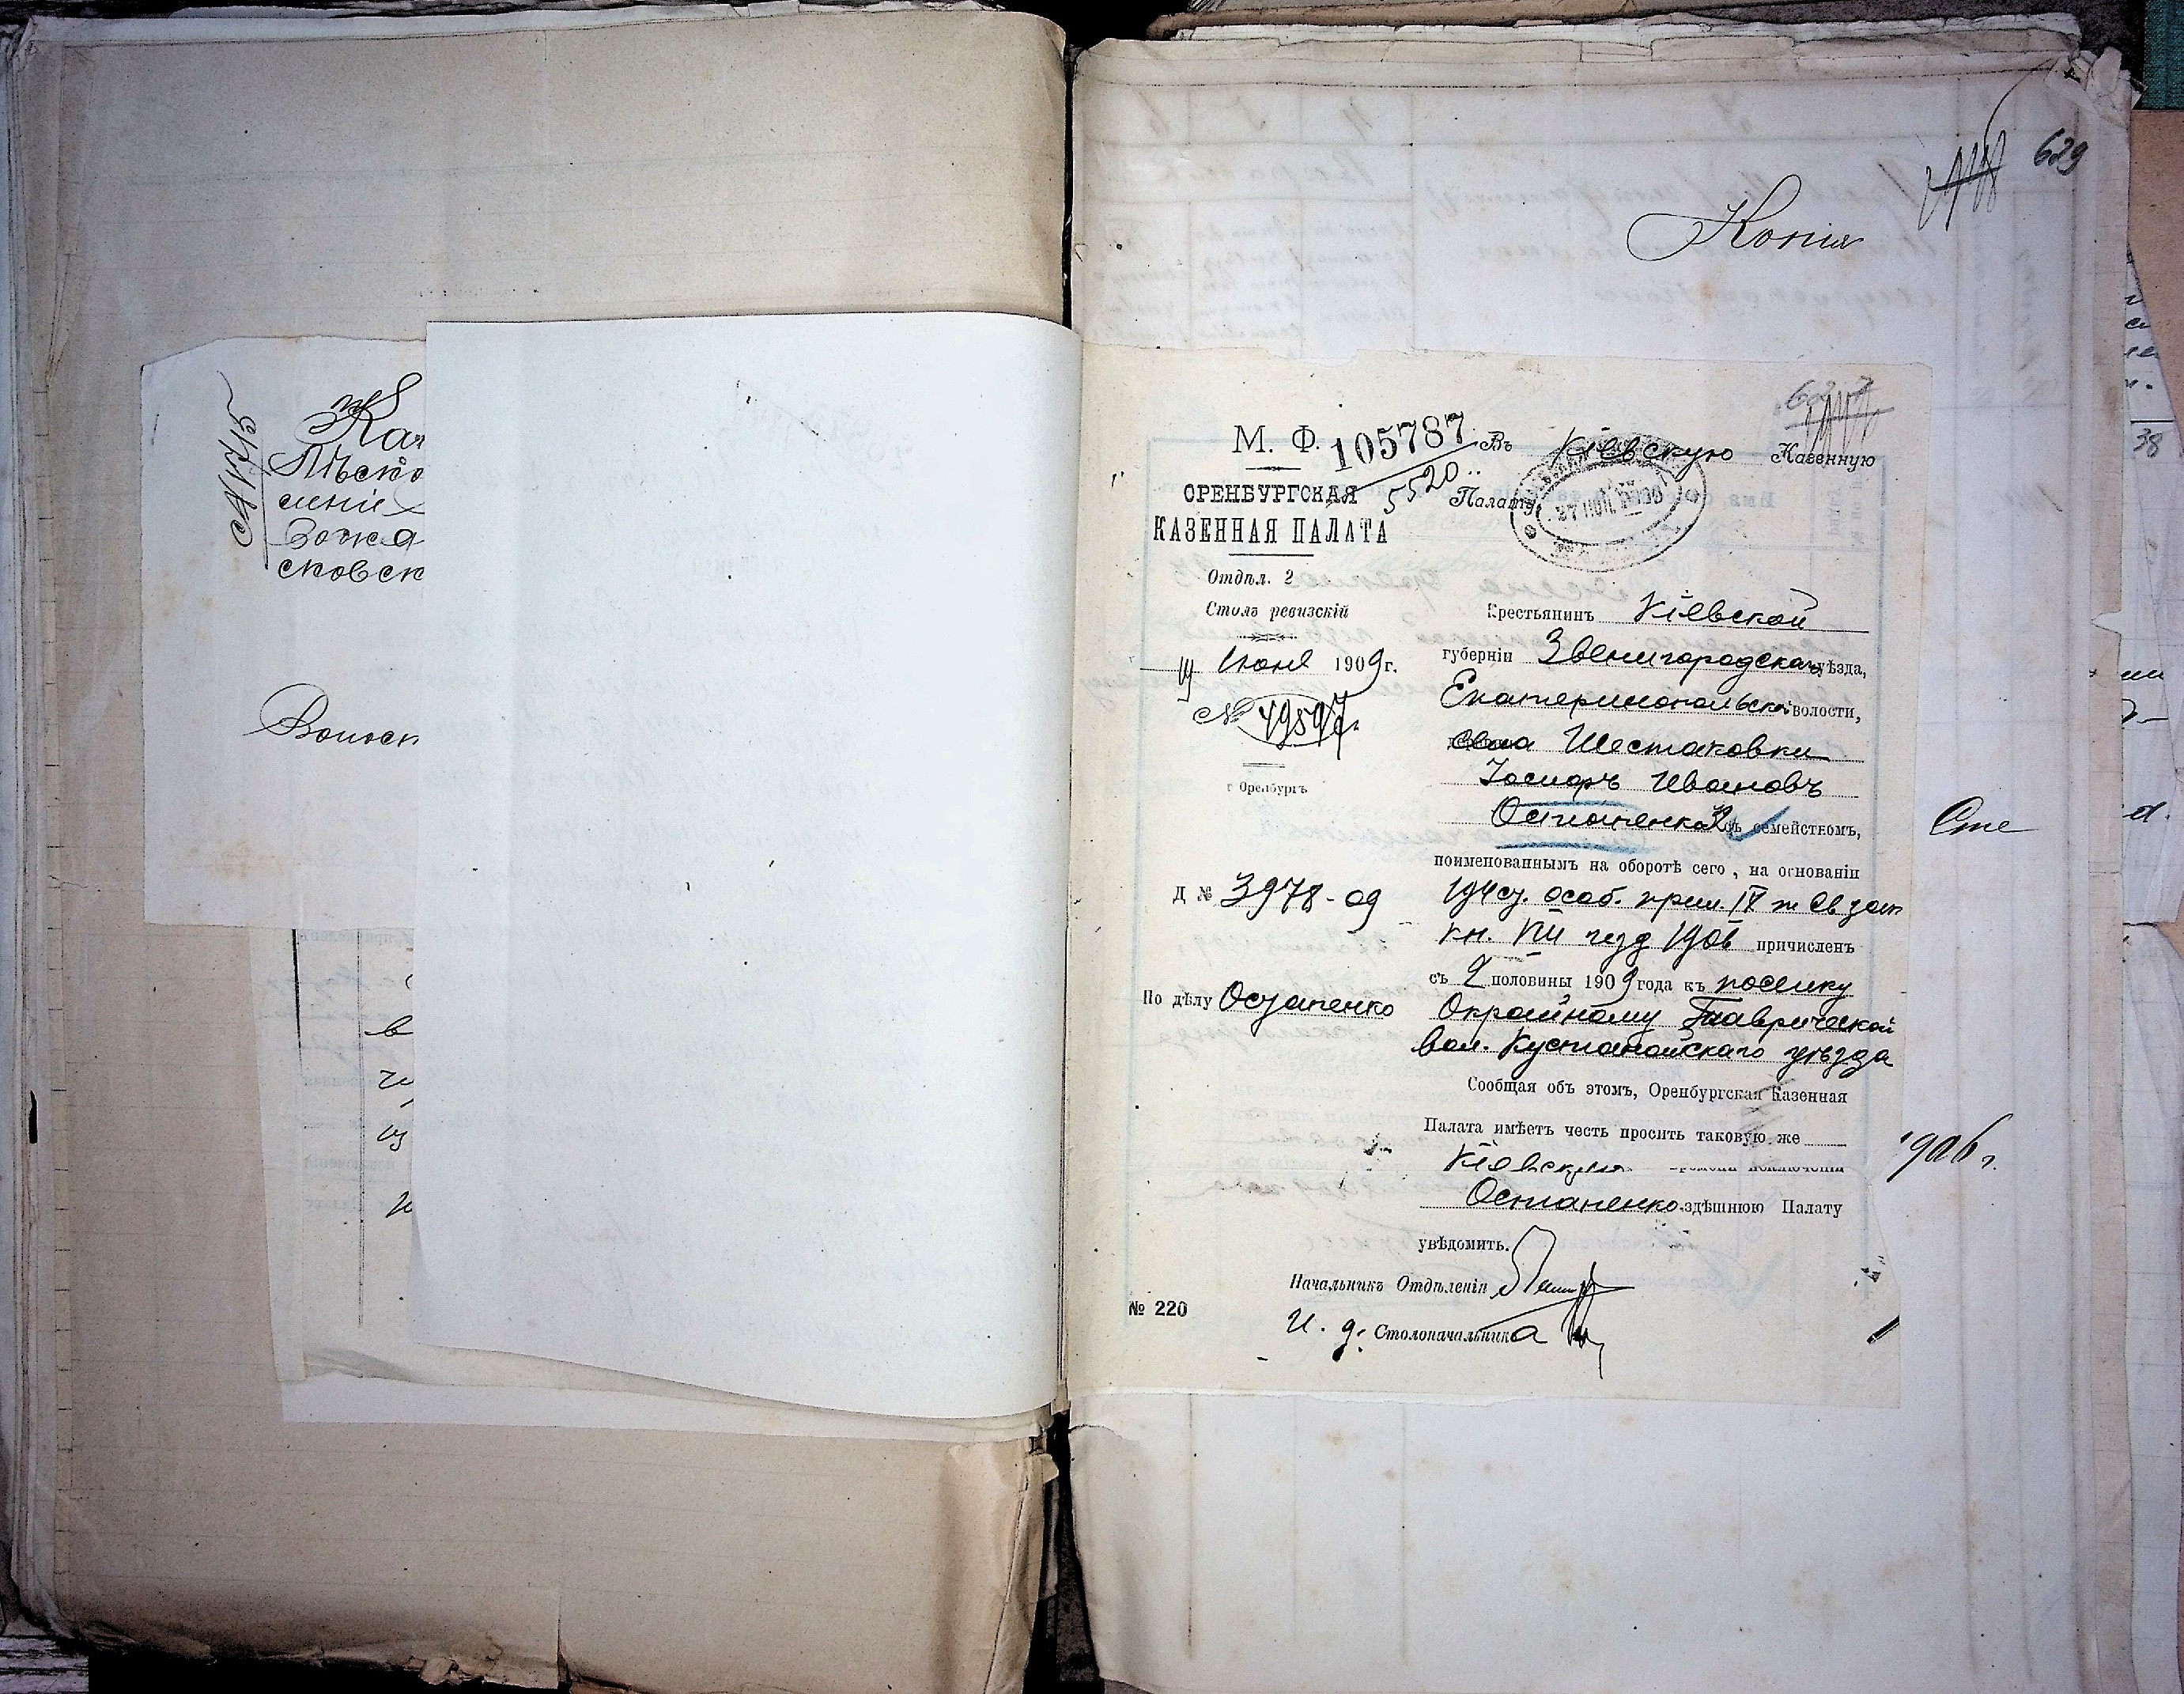 Кат
Пѣско
сковск
629
Копія
М. Ф.
105787
5520
ОРЕНБУРГСКАЯ
КАЗЕННАЯ ПАЛАТА
Отдѣл. 2
Столъ ревизскій
19 Іюня 1909 г.
№ 49597
г Оренбургъ
Д № 3978-09
По дѣлу Остапенко
№ 220
Въ Кіевскую Казенную
Палату.
Крестьянинъ Кіевской
губерніи Звенигородскаго уѣзда,
Екатеринопольской волости,
села Шестаковки
Іосифъ Ивановъ
Остапенко съ семействомъ,
поименованнымъ на оборотѣ сего, на основаніи
194 ст. особ. прил. IX т Св зак
кн. VIII изд 1906 причисленъ
съ 2 половины 1909 года къ поселку
Окрайному Таврической
вол. Кустанайскаго уѣзда
Сообщая объ этомъ, Оренбургская Казенная
Палата имѣетъ честь просить таковую же
Кіевскую времени исключенія
Остапенко здѣшнюю Палату
увѣдомить.
Начальникъ Отдѣленія
И. д. Столоначальника
1906 г.
38